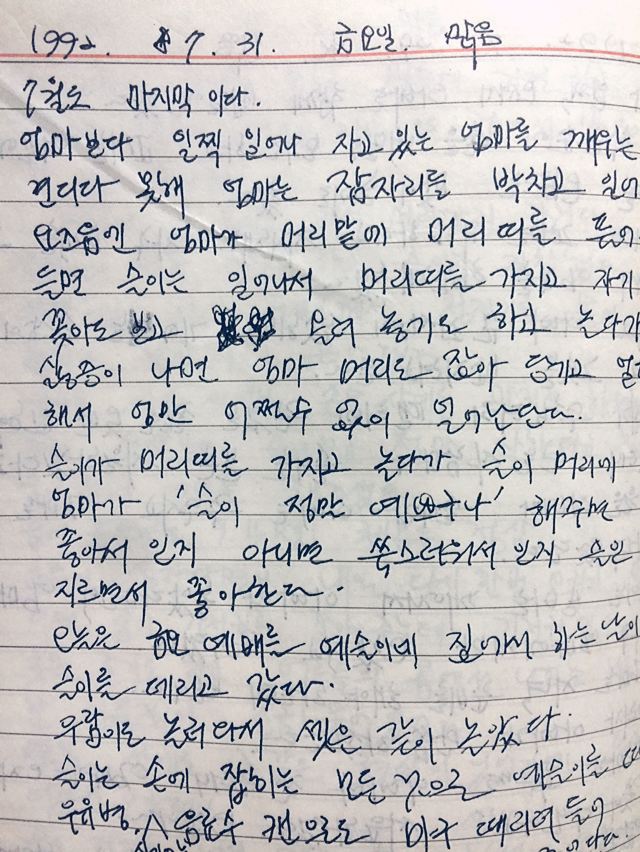 1992. 7. 31. 금요일. 맑음
7월도 마지막이다.
엄마보다 일찍 일어나 자고 있는 엄마를 깨우는
견디다 못해 엄마는 잠자리를 박차고 일어
요즈음엔 엄마가 머리맡에 머리띠를
들면 슬이는 일어나서 머리띠를 가지고 자기
꽂아도 보고 올려 놓기도 하고 놀다가
실증이 나면 엄마 머리도 잡아 당기고
해서 엄만 어쩔수 없이 일어난단다.
슬이가 머리띠를 가지고 놀다가 슬이 머리에
엄마가 '슬이 정말 예쁘구나' 해주면
좋아서 인지 아니면 쑥스러워서 인지 슬인
지르면서 좋아한다.
오늘은 금요 예배를 예슬이네 집에서 하는 날이
슬이를 데리고 갔다.
우람이도 놀러와서 셋은 같이 놀았다.
슬이는 손에 잡히는 모든 것으로 예슬이를
우유병, 음료수 캔으로도 마구 때리려 들어